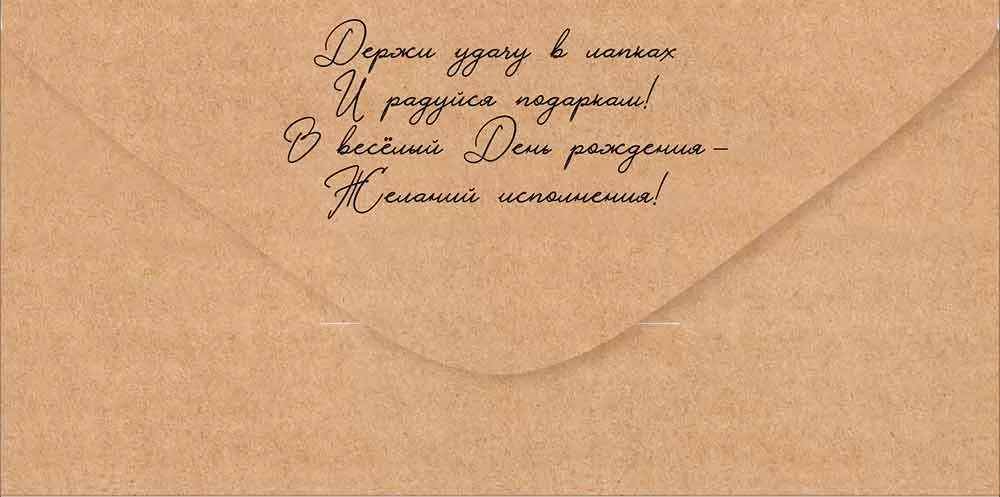 Держи удачу в лапках
И радуйся подаркам!
В весёлый День рождения –
Желаний исполнения!